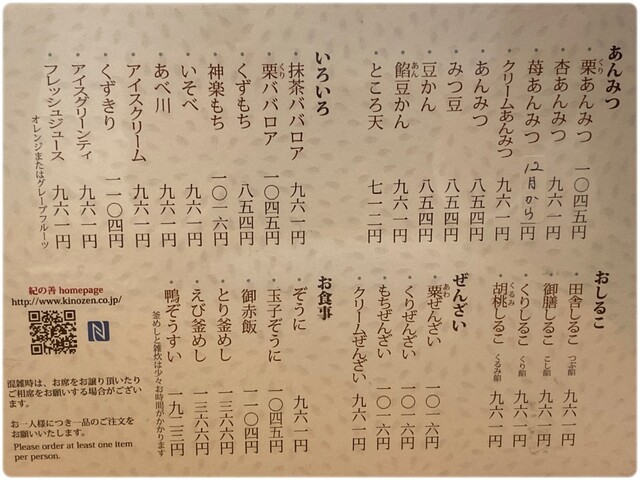 あんみつ
・栗あんみつ 一〇四五円
くり
・杏あんみつ 九六一円
・苺あんみつ 12月から 円
・クリームあんみつ 九六一円
・あんみつ 八五四円
・みつ豆 八五四円
・豆かん 八五四円
・餡豆かん 九六一円
あん
・ところ天 七一二円
いろいろ
・抹茶ババロア 九六一円
・栗ババロア 一〇四五円
くり
・くずもち 八五四円
・神楽もち 一〇一六円
・いそべ 九六一円
・あべ川 九六一円
・アイスクリーム 九六一円
・くずきり 一一〇四円
・アイスグリーンティ 九六一円
・フレッシュジュース 九六一円
オレンジまたはグレープフルーツ
おしるこ
・田舎しるこ つぶ餡 九六一円
・御膳しるこ こし餡 九六一円
・くりしるこ くり餡 九六一円
・胡桃しるこ くるみ餡 九六一円
くるみ
ぜんざい
・粟ぜんざい 一〇一六円
あわ
・くりぜんざい 一〇一六円
・もちぜんざい 一〇一六円
・クリームぜんざい 九六一円
お食事
・ぞうに 九六一円
・玉子ぞうに 一〇四五円
・御赤飯 一一〇四円
・とり釜めし 一三六六円
・えび釜めし 一三六六円
・鴨ぞうすい 一九二三円
釜めしと雑炊は少々お時間がかかります
紀の善 homepage
http://www.kinozen.co.jp/
N
混雑時は、お席をお譲り頂いたり
ご相席をお願いする場合がござい
ます。
お一人様につき一品のご注文を
お願いします。
Please order at least one item
per person.